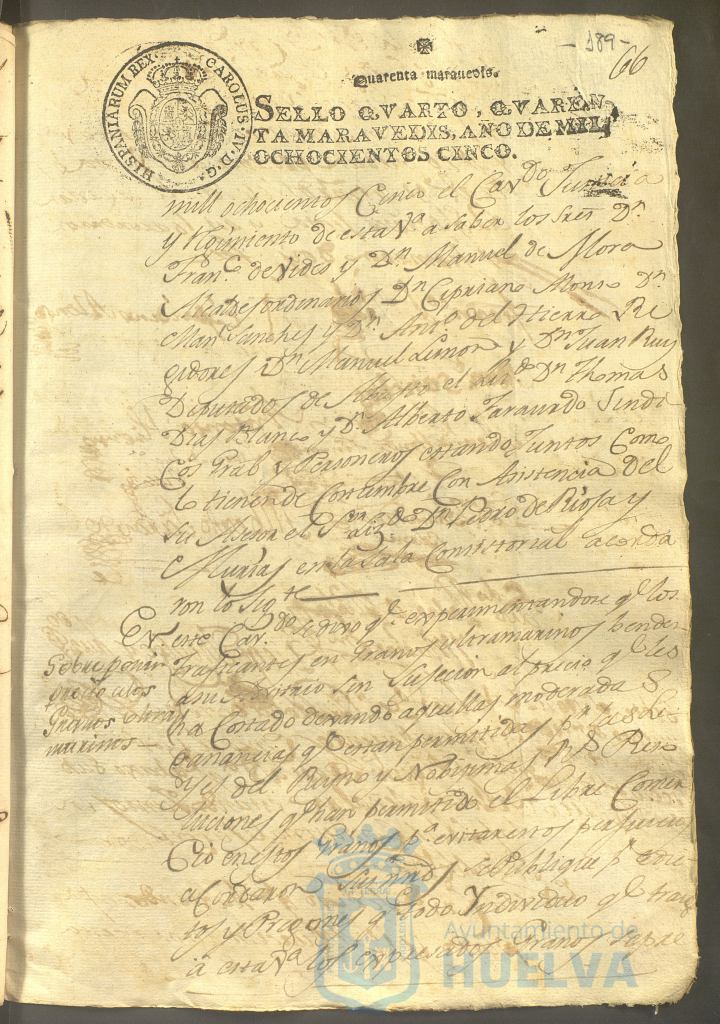 - 189 -
66
Quarenta maravedis.
HISPANIARUM REX CAROLUS IV D G
SELLO QVARTO, QVAREN
TA MARAVEDIS, AÑO DE MIL
OCHOCIENTOS CINCO.
mill ochocientos Cinco el Cavdo Justicia
y Rejimiento de esta Va a saber los Sres Dn
Franco de Vides y Dn Manuel de Mora
Alcaldes ordinarios Dn Cipriano Monso Dn
Manl Sanchez y Dn Anto del Hierro Re
gidores Dn Manuel Limon y Dn Juan Ruiz
Diputados de Abastos el Lizdo Dn Thomas
Dias Blanco y Dn Alberto Sindi
cos Gral y Personeros estando Juntos Como
lo tienen de Costumbre Con Asistencia del
su Asesor el Sr Lizdo Dn Pedro de Rioja y
Murias en la Sala Consistorial acorda
ron lo Sigte
En este Cavdo se dixo qe experimentandose qe los
traficantes en Granos ultramarinos benden
a su Advitrio sin Sujecion al precio qe les
ha Costado devando aquellas moderadas
ganancias qe estan permitidas pr las Le
yes del Reyno y Novisimas Rs Reso
luciones qe han permitido el Libre Comer
cio en estos Granos pa evitar estos perjuicios
acordaron Sus mrds se Publique pr Edic
tos y Pregones qe todo Yndividuo qe traiga
a esta Va los expresados Granos
Sobre poner
precio a los
Granos ultra
marinos
Ayuntamiento de
HUELVA